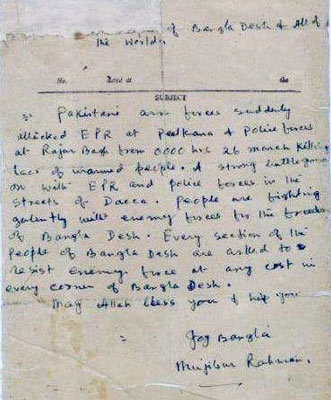 of Bangla Desh & All of
the World
No. Dated
SUBJECT
Pakistani arm forces suddenly
attacked EPR at Peelkana & Police forces
at Rajar Bag from 0000 hrs 26 march killing
lacs of unarmed people. A strong battle going
on with EPR and police forces in the
streets of Dacca. People are fighting
galently with enemy forces for the freedom
of Bangla Desh. Every section of the
People of Bangla Desh are asked to
resist enemy force at any cost in
every corner of Bangla Desh.
May Allah bless you & help you
Joy Bangla
Mujibur Rahman.